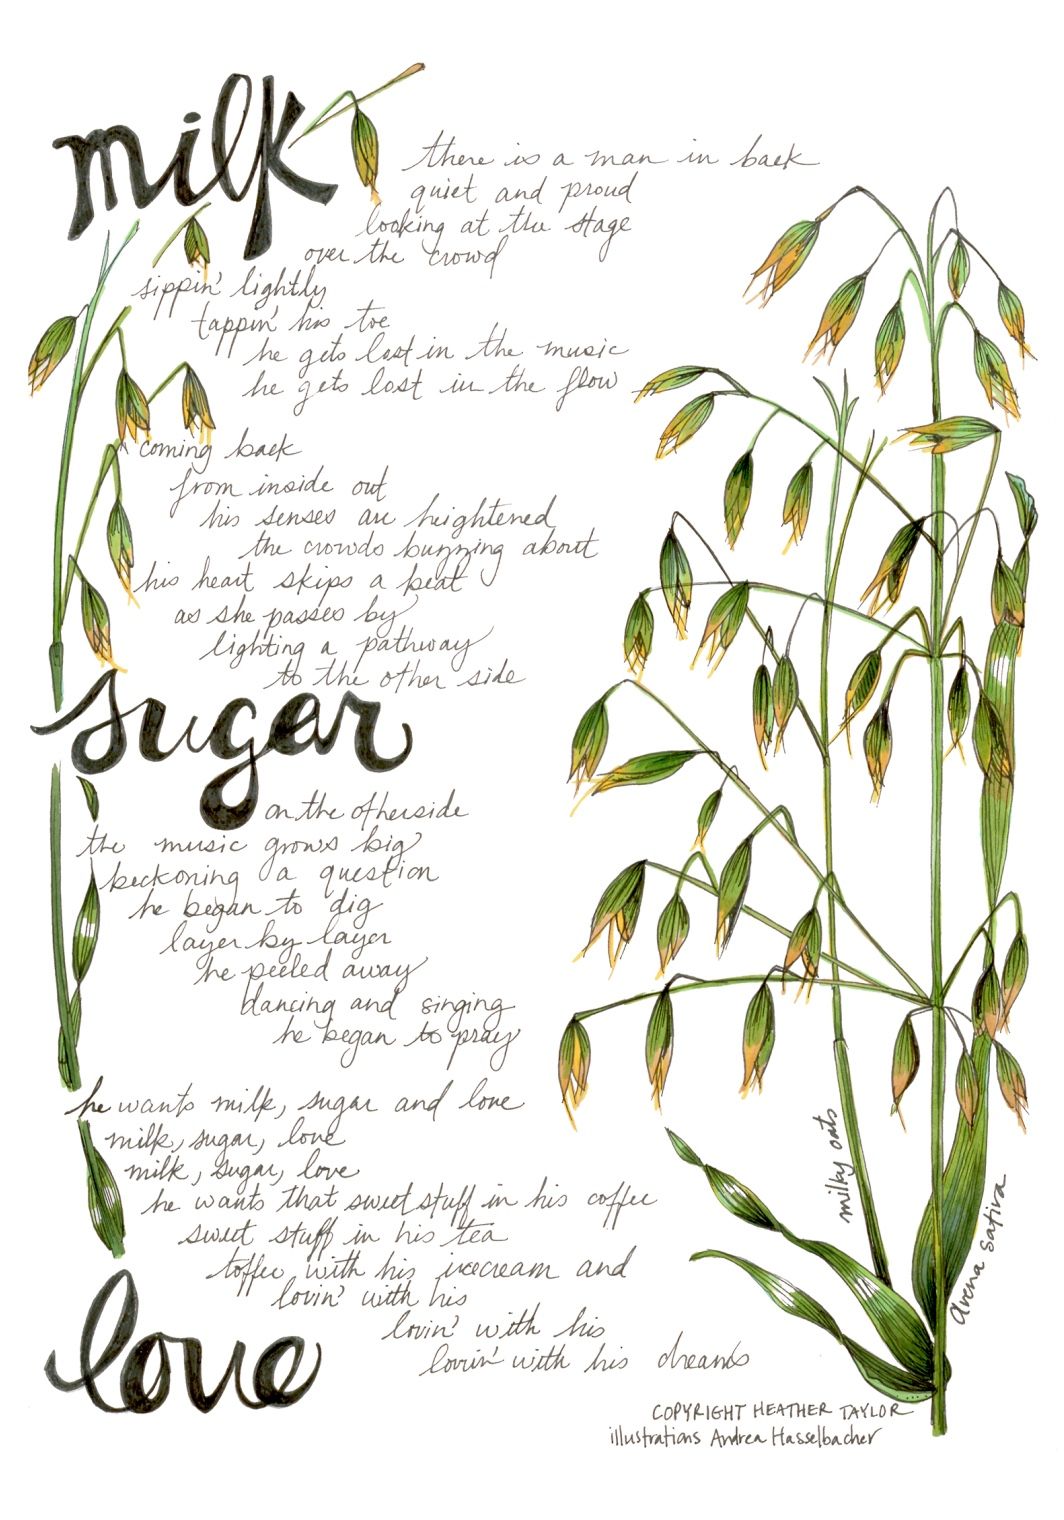 milk
there is a man in back
quiet and proud
looking at the stage
over the crowd
sippin' lightly
tappin' his toe
he gets lost in the music
he gets lost in the flow
coming back
from inside out
his senses are heightened
the crowds buzzing about
his heart skips a beat
as she passes by
lighting a pathway
to the other side
sugar
on the otherside
the music grows big
beckoning a question
he began to dig
layer by layer
he peeled away
dancing and singing
he began to pray
he wants milk, sugar and love
milk, sugar, love
milk, sugar, love
he wants that sweet stuff in his coffee
sweet stuff in his tea
toffee with his icecream and
lovin' with his
lovin' with his
lovin' with his dreams
love
milky oats
avena sativa
COPYRIGHT HEATHER TAYLOR
illustrations Andrea Hasselbacher